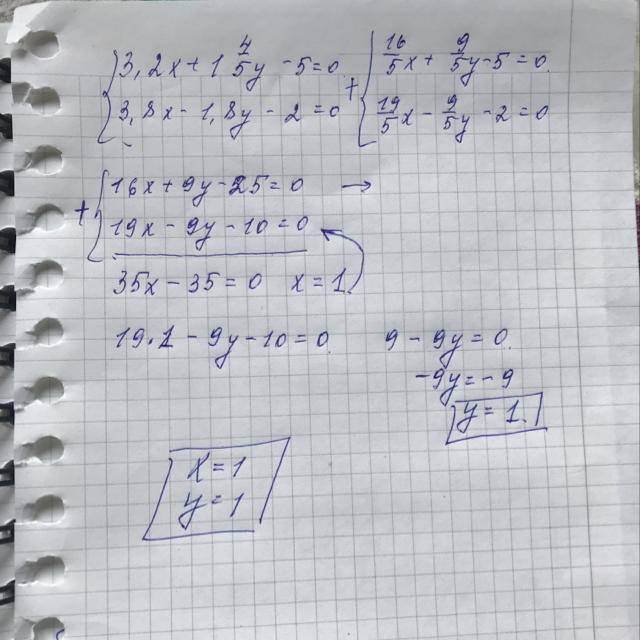 {3,2x + 1 4/5 y - 5 = 0
3,8x - 1,8y - 2 = 0
+ {16/5 x + 9/5 y - 5 = 0
19/5 x - 9/5 y - 2 = 0
+ {16x + 9y - 25 = 0 →
19x - 9y - 10 = 0
35x - 35 = 0 x = 1
19 · 1 - 9y - 10 = 0 9 - 9y = 0
-9y = -9
y = 1.
x = 1
y = 1